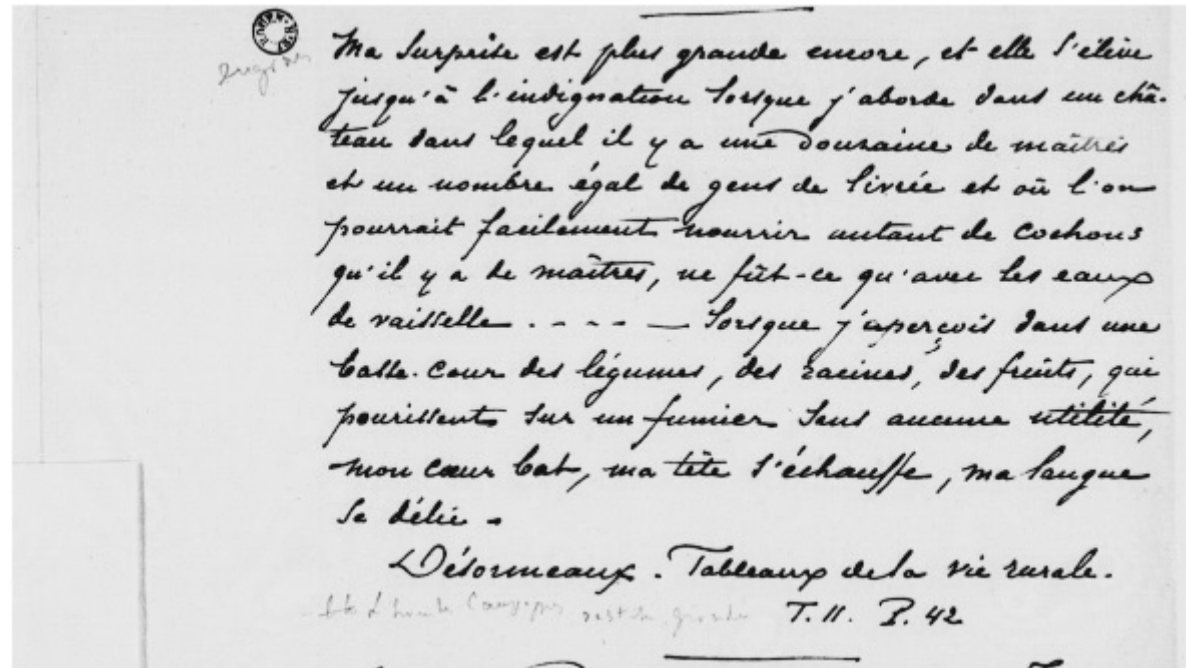 Ma surprise est plus grande encore, et elle s'élève
jusqu'à l'indignation lorsque j'aborde dans un châ-
teau dans lequel il y a une douzaine de maîtres
et un nombre égal de gens de livrée et où l'on
pourrait facilement nourrir autant de cochons
qu'il y a de maîtres, ne fût-ce qu'avec les eaux
de vaisselle . - - - — lorsque j'aperçois dans une
basse-cour des légumes, des racines, des fruits, qui
pourissent sur un fumier sans aucune utilité,
mon cœur bat, ma tête s'échauffe, ma langue
se délie .
Désormeaux . Tableaux de la vie rurale.
T. II. P. 42